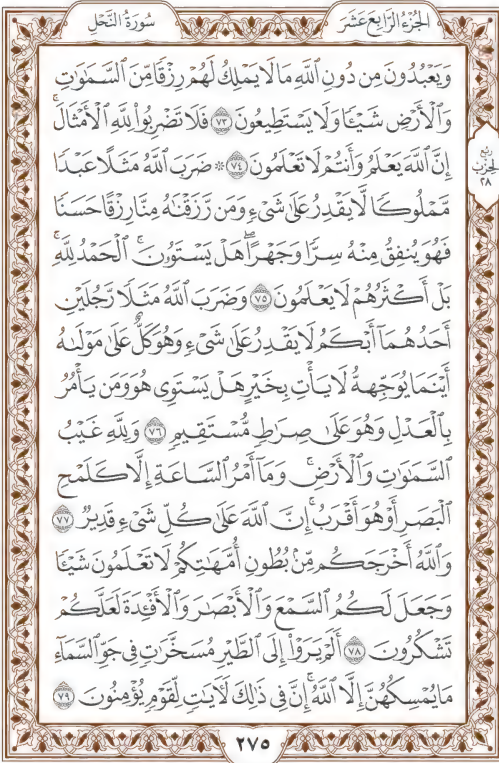 الجُزْءُ الرَّابِعَ عَشَرَ
سُورَةُ النَّحْلِ
وَيَعْبُدُونَ مِن دُونِ ٱللَّهِ مَا لَا يَمْلِكُ لَهُمْ رِزْقًا مِّنَ ٱلسَّمَٰوَٰتِ
وَٱلْأَرْضِ شَيْـًٔا وَلَا يَسْتَطِيعُونَ ۝٧٣ فَلَا تَضْرِبُوا۟ لِلَّهِ ٱلْأَمْثَالَ ۚ
إِنَّ ٱللَّهَ يَعْلَمُ وَأَنتُمْ لَا تَعْلَمُونَ ۝٧٤ ۞ ضَرَبَ ٱللَّهُ مَثَلًا عَبْدًا
مَّمْلُوكًا لَّا يَقْدِرُ عَلَىٰ شَىْءٍ وَمَن رَّزَقْنَٰهُ مِنَّا رِزْقًا حَسَنًا
فَهُوَ يُنفِقُ مِنْهُ سِرًّا وَجَهْرًا ۖ هَلْ يَسْتَوُۥنَ ۚ ٱلْحَمْدُ لِلَّهِ ۚ
بَلْ أَكْثَرُهُمْ لَا يَعْلَمُونَ ۝٧٥ وَضَرَبَ ٱللَّهُ مَثَلًا رَّجُلَيْنِ
أَحَدُهُمَآ أَبْكَمُ لَا يَقْدِرُ عَلَىٰ شَىْءٍ وَهُوَ كَلٌّ عَلَىٰ مَوْلَىٰهُ
أَيْنَمَا يُوَجِّههُّ لَا يَأْتِ بِخَيْرٍ ۖ هَلْ يَسْتَوِى هُوَ وَمَن يَأْمُرُ
بِٱلْعَدْلِ ۙ وَهُوَ عَلَىٰ صِرَٰطٍ مُّسْتَقِيمٍ ۝٧٦ وَلِلَّهِ غَيْبُ
ٱلسَّمَٰوَٰتِ وَٱلْأَرْضِ ۚ وَمَآ أَمْرُ ٱلسَّاعَةِ إِلَّا كَلَمْحِ
ٱلْبَصَرِ أَوْ هُوَ أَقْرَبُ ۚ إِنَّ ٱللَّهَ عَلَىٰ كُلِّ شَىْءٍ قَدِيرٌ ۝٧٧
وَٱللَّهُ أَخْرَجَكُم مِّنۢ بُطُونِ أُمَّهَٰتِكُمْ لَا تَعْلَمُونَ شَيْـًٔا
وَجَعَلَ لَكُمُ ٱلسَّمْعَ وَٱلْأَبْصَٰرَ وَٱلْأَفْـِٔدَةَ ۙ لَعَلَّكُمْ
تَشْكُرُونَ ۝٧٨ أَلَمْ يَرَوْا۟ إِلَى ٱلطَّيْرِ مُسَخَّرَٰتٍ فِى جَوِّ ٱلسَّمَآءِ
مَا يُمْسِكُهُنَّ إِلَّا ٱللَّهُ ۗ إِنَّ فِى ذَٰلِكَ لَءَايَٰتٍ لِّقَوْمٍ يُؤْمِنُونَ ۝٧٩
ربع
الحزب
٢٨
٢٧٥